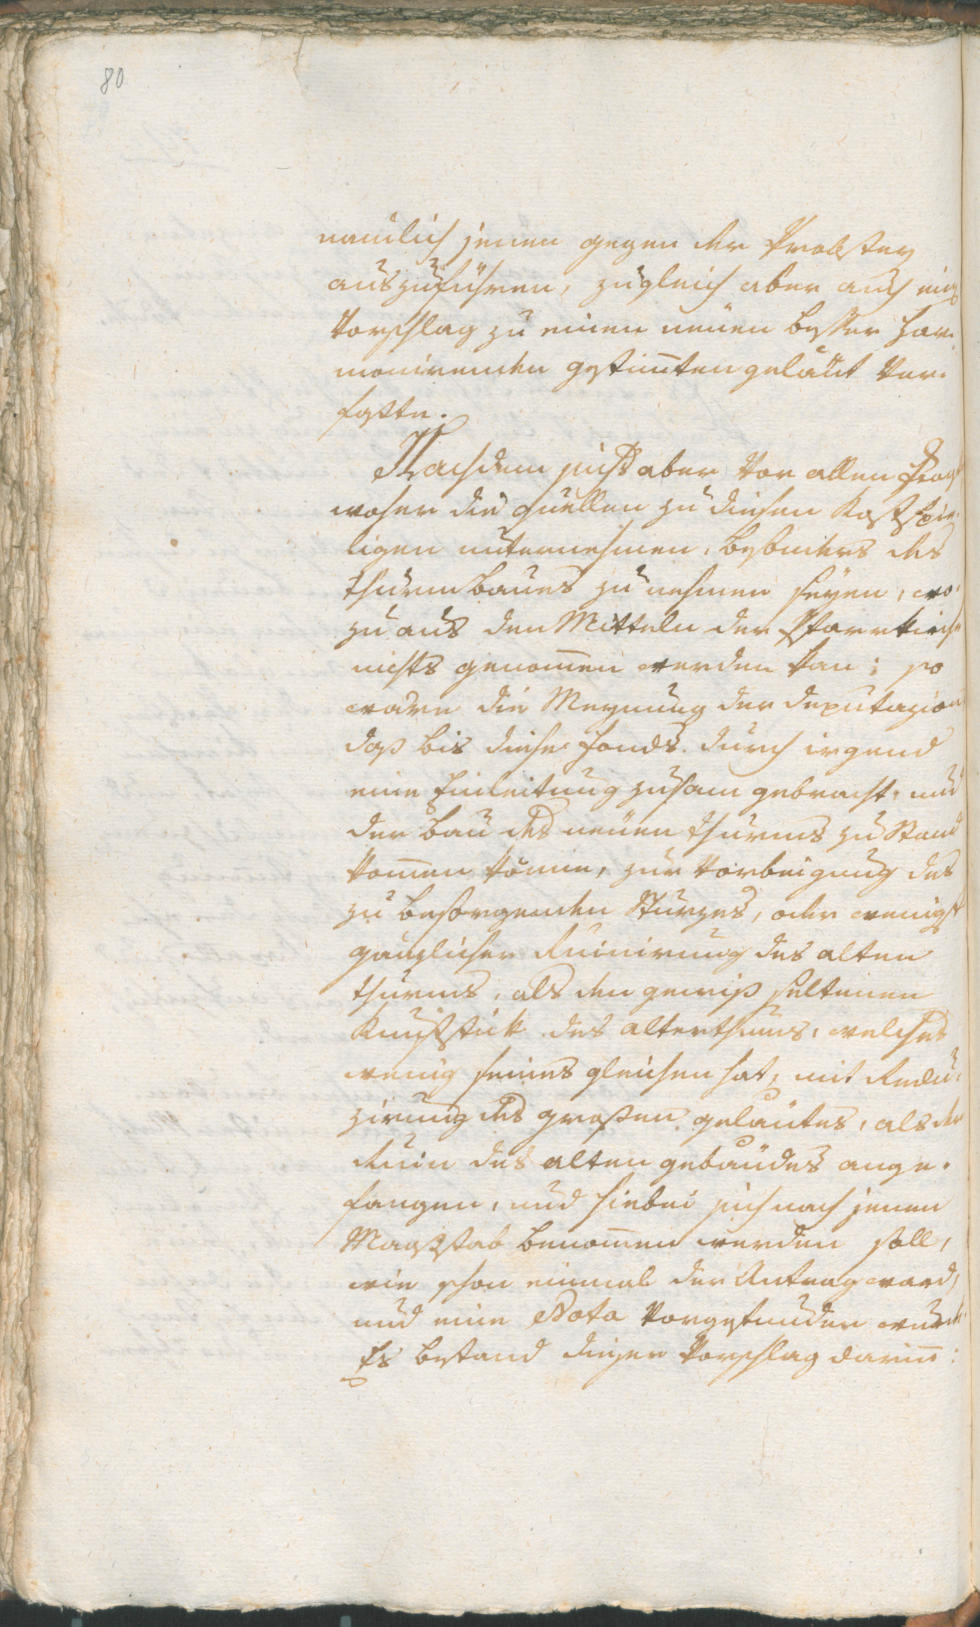 80
nämlich jenen gegen der Probstey
auszuführen, zugleich aber auch ein
Vorschlag zu einen neuen besser har-
monirenden gestim̅ten geläut ver-
faste.
Nachdem sichs aber vor allen fragt
woher die quellen zu diesen kostspie-
ligen unternehmen, besonders des
thurm baues zu nehmen seyen, wo-
zu aus den Mitteln der Pfarrkirche
nichts genom̅en werden kan; so
ware die Meynung der deputazion
daß bis diese fonds durch irgend
eine Einleitung zusam gebracht, und
der bau des neuen thurms zu Stand
kom̅en könne, zur vorbeigung des
zu besorgenden Sturzes, oder wenigst
gänzlicher Ruinirung des alten
thurms, als den gewiß seltenen
kunststük des alterthums, welches
wenig seines gleichen hat, mit Redu-
zirung des großen geläutes, als der
Ruin des alten gebäudes ange-
fangen, und hiebei sich nach jenen
Maaßstab benom̅en werden soll,
wie schon einmal der Antrag ward,
und eine Nota vorgefunden wurde.
Es bestand dieser Vorschlag darin̅: